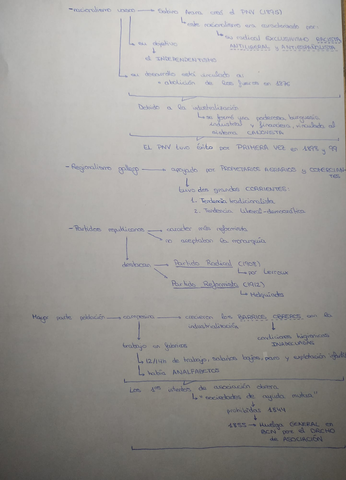 -Nacionalismo vasco → Sabino Arana creó el PNV (1895)
este nacionalismo era caracterizado por:
su radical EXCLUSIVISMO RACISTA
ANTILIBERAL y ANTIESPAÑOLISTA
su objetivo
el INDEPENDENTISMO
su desarrollo está vinculado a:
abolición de los fueros en 1876
Debido a la industrialización
se formó una poderosa burguesía
industrial y financiera, vinculada al
sistema CANOVISTA
EL PNV tuvo éxito por PRIMERA VEZ en 1898 y 99
-Regionalismo gallego → apoyado por PROPIETARIOS AGRARIOS y COMERCIAN-
TES
tuvo dos grandes CORRIENTES:
1. Tendencia tradicionalista
2. Tendencia liberal-democrática
-Partidos republicanos → carácter más reformista
no aceptaban la monarquía
destacan → Partido Radical (1908)
por Lerroux
Partido Reformista (1912)
Melquíades
Mayor parte población → campesina → crecieron los BARRIOS OBREROS con la
industrialización
condiciones higiénicas
INSALUBRES
trabajo en fábricas
12/14h de trabajo, salarios bajos, paro y explotación
había ANALFABETOS
Los 1ºs intentos de asociación obrera
"sociedades de ayuda mutua"
prohibidas 1844
1855 → Huelga GENERAL en
BCN para el DRCHO
de ASOCIACIÓN